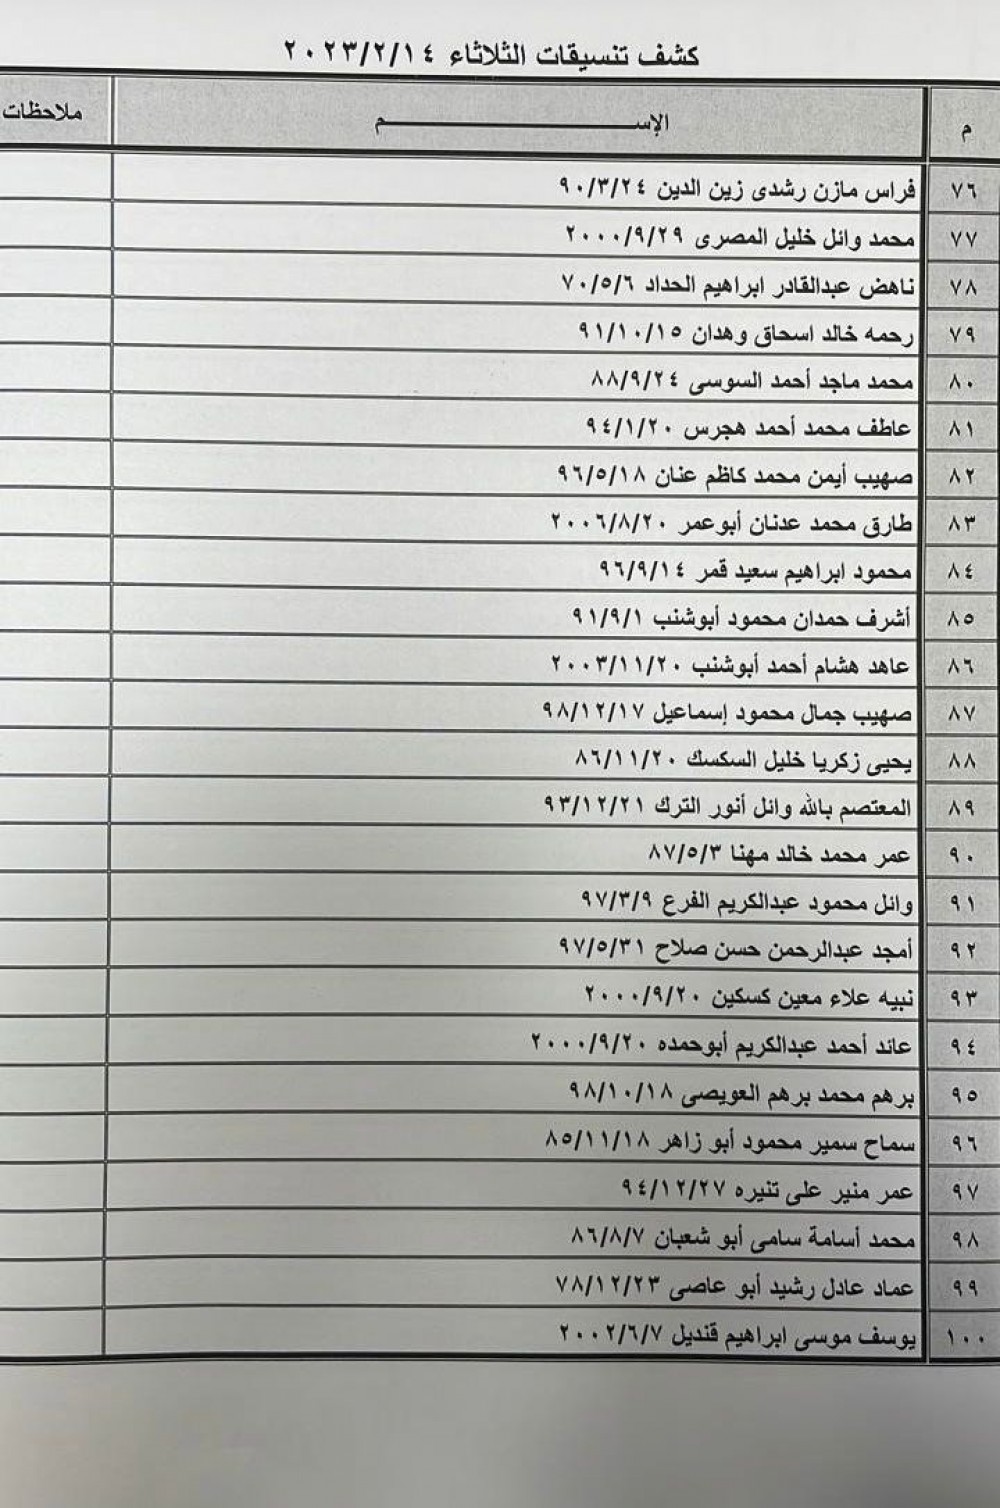 كشف تنسيقات الثلاثاء ٢٠٢٣/٢/١٤
م الإســـــم ملاحظات
٧٦ فراس مازن رشدى زين الدين ٩٠/٣/٢٤
٧٧ محمد وائل خليل المصرى ٢٠٠٠/٩/٢٩
٧٨ ناهض عبدالقادر ابراهيم الحداد ٧٠/٥/٦
٧٩ رحمه خالد اسحاق وهدان ٩١/١٠/١٥
٨٠ محمد ماجد أحمد السوسى ٨٨/٩/٢٤
٨١ عاطف محمد أحمد هجرس ٩٤/١/٢٠
٨٢ صهيب أيمن محمد كاظم عنان ٩٦/٥/١٨
٨٣ طارق محمد عدنان أبوعمر ٢٠٠٦/٨/٢٠
٨٤ محمود ابراهيم سعيد قمر ٩٦/٩/١٤
٨٥ أشرف حمدان محمود أبوشنب ٩١/٩/١
٨٦ عاهد هشام أحمد أبوشنب ٢٠٠٣/١١/٢٠
٨٧ صهيب جمال محمود إسماعيل ٩٨/١٢/١٧
٨٨ يحيى زكريا خليل السكسك ٨٦/١١/٢٠
٨٩ المعتصم بالله وائل أنور الترك ٩٣/١٢/٢١
٩٠ عمر محمد خالد مهنا ٨٧/٥/٣
٩١ وائل محمود عبدالكريم الفرع ٩٧/٣/٩
٩٢ أمجد عبدالرحمن حسن صلاح ٩٧/٥/٣١
٩٣ نبيه علاء معين كسكين ٢٠٠٠/٩/٢٠
٩٤ عائد أحمد عبدالكريم أبوحمده ٢٠٠٠/٩/٢٠
٩٥ برهم محمد برهم العويصى ٩٨/١٠/١٨
٩٦ سماح سمير محمود أبو زاهر ٨٥/١١/١٨
٩٧ عمر منير على تنيره ٩٤/١٢/٢٧
٩٨ محمد أسامة سامى أبو شعبان ٨٦/٨/٧
٩٩ عماد عادل رشيد أبو عاصى ٧٨/١٢/٢٣
١٠٠ يوسف موسى ابراهيم قنديل ٢٠٠٢/٦/٧